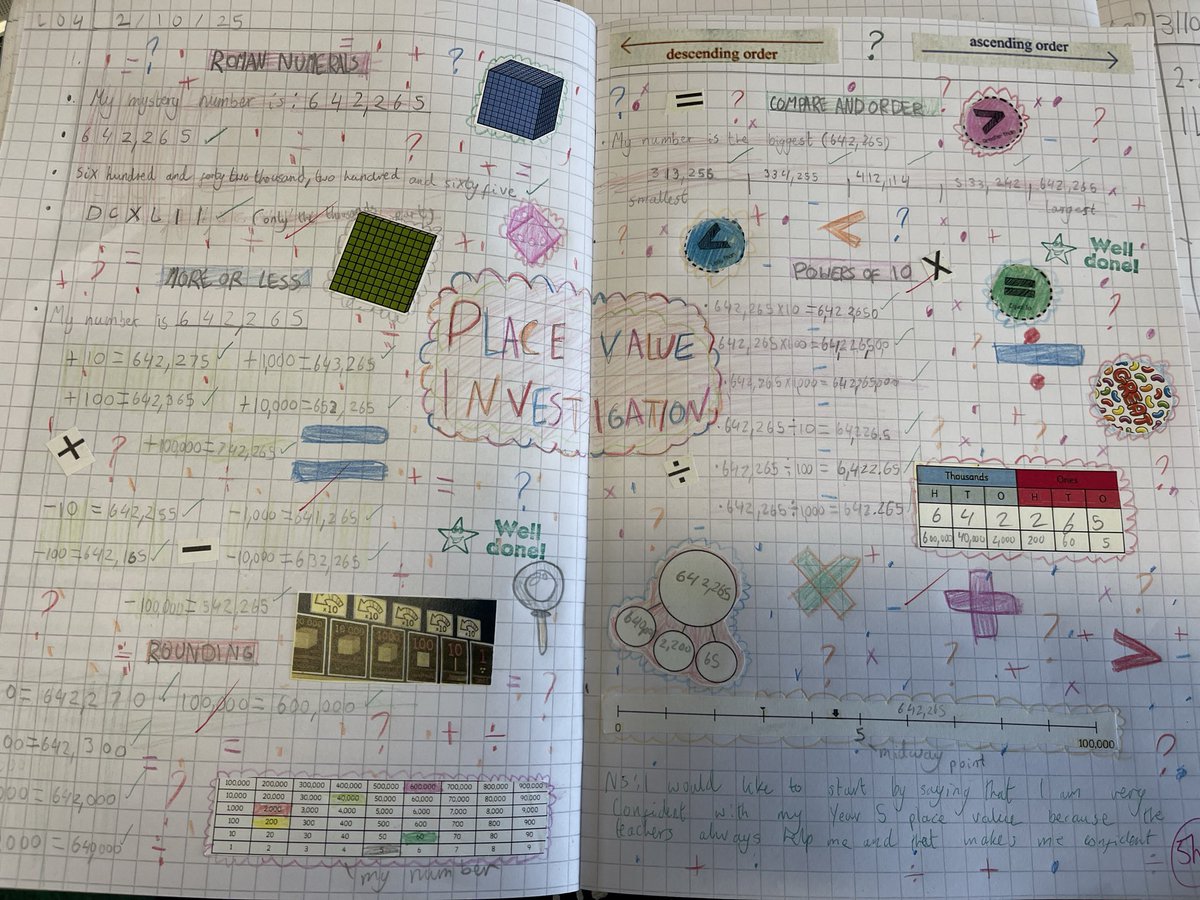 LO4 2/10/25
ROMAN NUMERALS
My mystery number is: 642,265
642,265
six hundred and forty two thousand, two hundred and sixty five
DCXLII (only the thousands part)
MORE OR LESS
My number is 642,265
+10=642,275 +1,000=643,265
+100=642,365 +10,000=652,265
+100,000=742,265
-10=642,255 -1,000=641,265
-100=642,165 -10,000=632,265
-100,000=542,265
Well done!
x10 x10 x10 x10 x10
10,000 1000 100 10 1
ROUNDING
0=642,270 100,000=600,000
00=642,300
000=642,000
000=640,000
100,000 200,000 300,000 400,000 500,000 600,000 700,000 800,000 900,000
10,000 20,000 30,000 40,000 50,000 60,000 70,000 80,000 90,000
1,000 2,000 3,000 4,000 5,000 6,000 7,000 8,000 9,000
100 200 300 400 500 600 700 800 900
10 20 30 40 50 60 70 80 90
1 2 3 4 5 6 7 8 9
my number
PLACE VALUE
INVESTIGATION
descending order
ascending order
COMPARE AND ORDER
greater than
My number is the biggest (642,265)
313,256 , 334,255 , 412,114 , 533,242 , 642,265
smallest largest
Well done!
POWERS OF 10
642,265x10=6,422650
642,265x100=64,226500
642,265x1000=642,265000
642,265÷10=64226.5
642,265÷100=6,422.65
642,265÷1000=642.265
GREAT
Thousands Ones
H T O H T O
6 4 2 2 6 5
600,000 40,000 2,000 200 60 5
642,265
2,200
65
642,265
0 5 100,000
midway point
NS: I would like to start by saying that I am very
Confident with my Year 5 place value because the
teachers always help me and that makes me confident